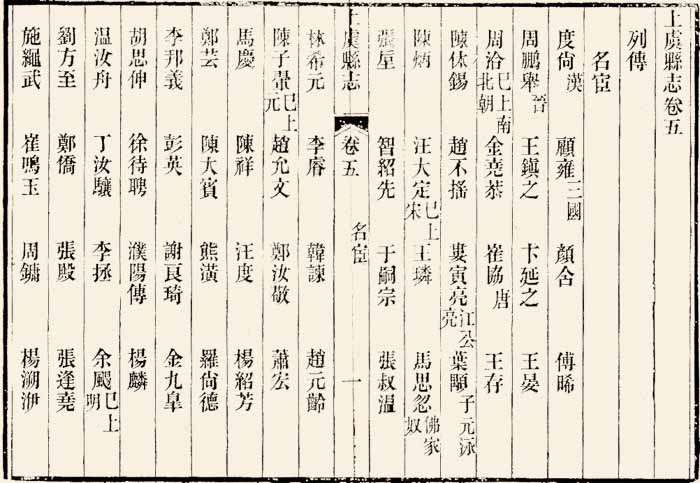 上虞縣志卷五
列傳
名宦
度尙漢 顧雍三國 顏含 傅晞
周鵬舉晉 王鎮之 卞延之 王晏
周洽巳上南北朝 金堯恭 崔協唐 王存
陳休錫 趙不搖 婁寅亮江公亮 葉顒子元泳
陳炳 汪大定巳上宋 王璘 馬思忽佛家奴
張垕 智紹先 于嗣宗 張叔溫
上虞縣志 卷五 名宦 一
林希元 李睿 韓諫 趙元齡
陳子翬巳上元 趙允文 鄭汝敬 蕭宏
馬慶 陳祥 汪度 楊紹芳
鄭芸 陳大賓 熊潢 羅尙德
李邦義 彭英 謝良琦 金九臯
胡思伸 徐待聘 濮陽傳 楊麟
温汝舟 丁汝驤 李拯 余颺巳上明
劉方至 鄭僑 張殿 張逢堯
施繩武 崔鳴玉 周鏞 楊溯洢